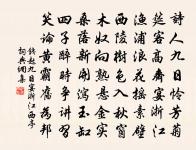 詩人九日憐芳菊
筵客高齋宴浙江
漁浦浪花搖素壁
西陵樹色入秋窗
木奴向熟懸金實
桑落新開瀉玉缸
四子醉時爭講習
笑論黃霸舊為邦
錢起九日宴浙江西亭
詞典網集